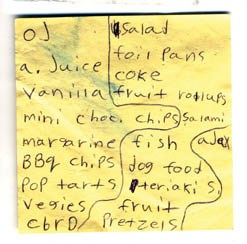 OJ
a. Juice
Vanilla
mini choc. chips
margarine
BBQ chips
POP tarts
Vegies
cbrD
salad
foil pans
coke
fruit rollups
salami
fish
dog food
teriaki S.
fruit
Pretzels
ajax